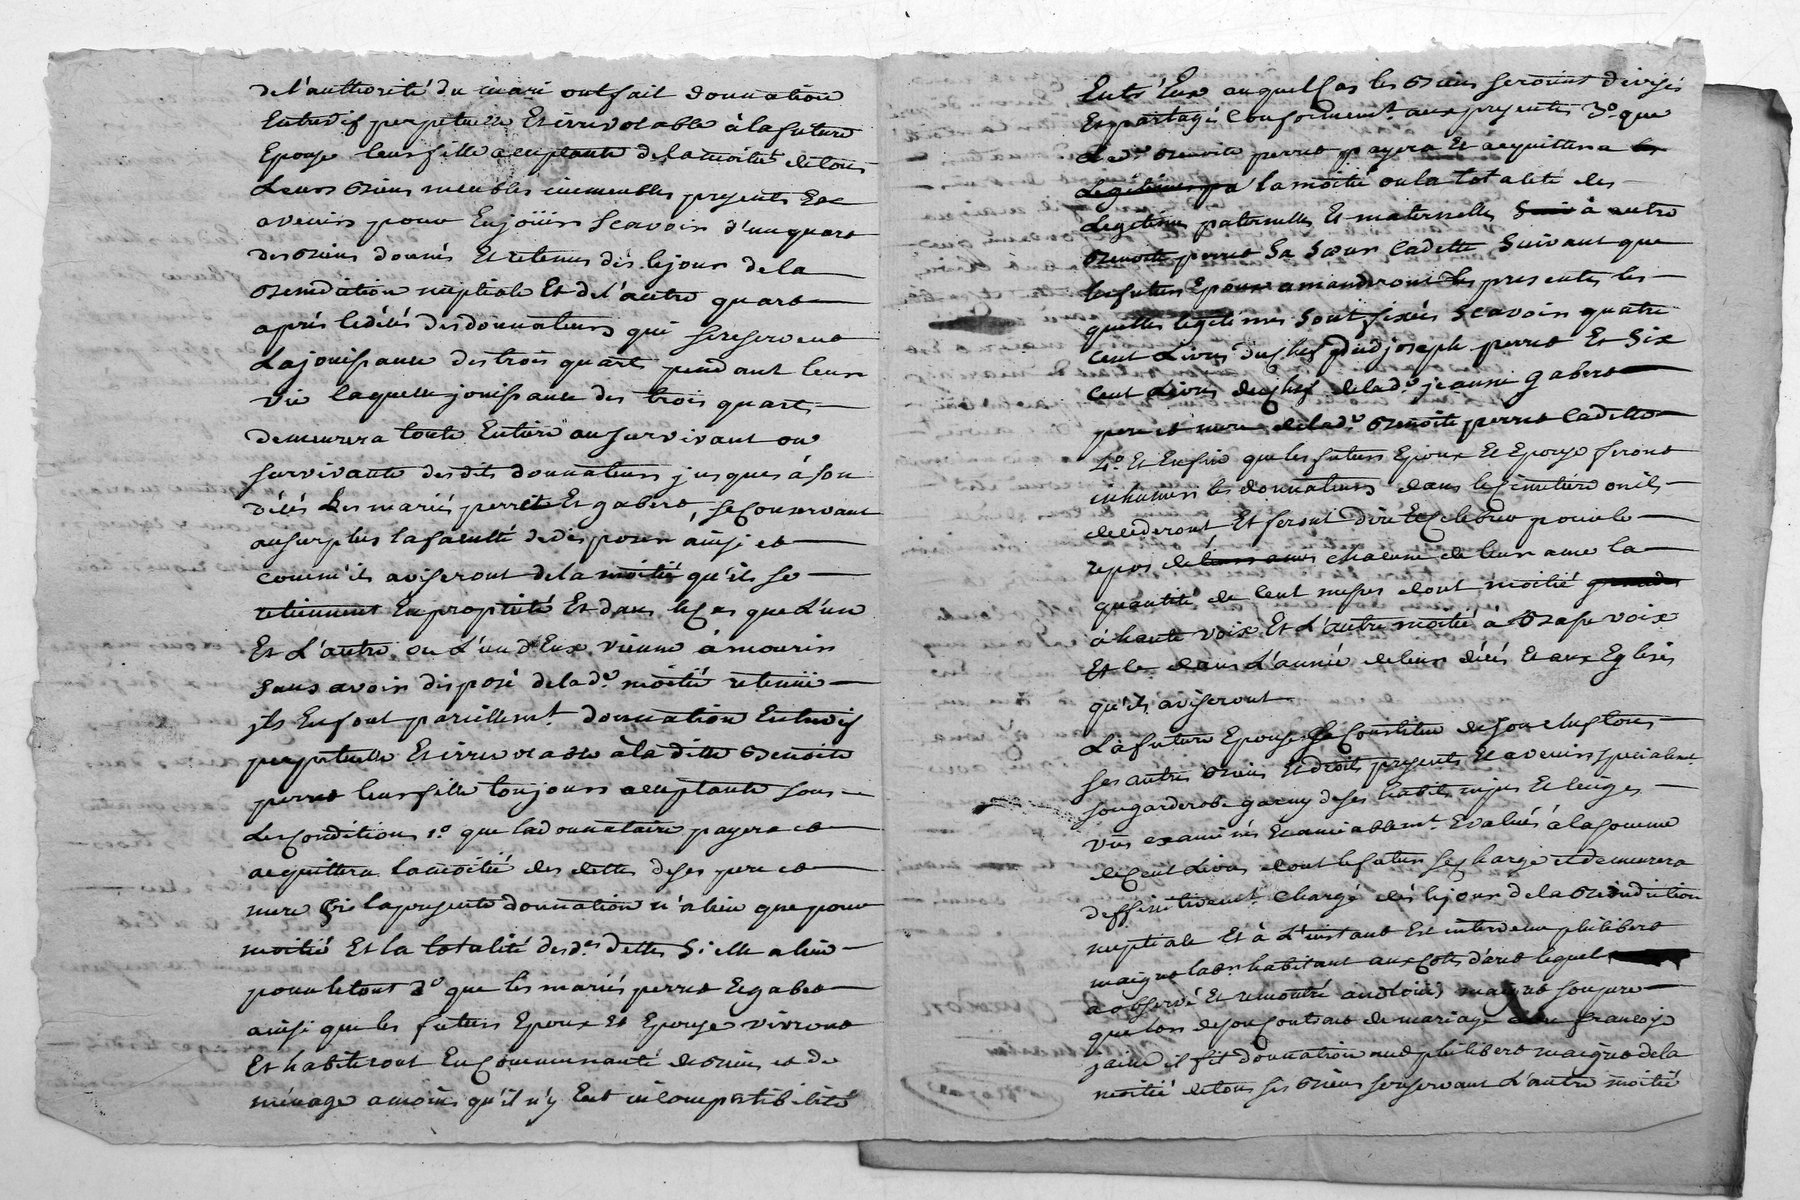 de l'authorité du mari ont fait donnation
Entrevif perpetuelle Et irrevocable à la future
Epouse leur fille acceptante de la moitié de tous
Leurs Biens meubles immeubles presents Et
avenirs pour En joüir scavoir d'un quart
des Biens donnés Et retenus dès le jour de la
Benediction nuptiale Et de l'autre quart
après le décés des donnateurs qui se reservent
La jouissance des trois quart pendant leur
vie laquelle jouissance des trois quart
demeurera toute Entiere au survivant ou
survivante desdits donnateurs jusques à son
décés Les mariés perret Et gabert, se Conservant
au surplus la faculté de disposer ainsi et
comm'ils aviseront de la moitié qu'ils se
retiennent En proprieté Et dans le Cas que L'un
Et L'autre ou L'un d'Eux vienne à mourir
sans avoir disposé de lad.e moitié retenüe
ils En font pareillem.t donnation Entrevif
perpetuelle Et irrevocable à la ditte Benoite
perret leur fille toujours acceptante sous
Les Conditions 1.o que la donnataire payera et
acquittera la moitié des dettes de ses pere et
mere Si la presente donnation n'a lieu que pour
moitié Et la totalité desd.es dettes Si elle a lieu
pour le tout 2.o que les mariés perret Et gabert
ainsi que les futurs Epoux et Epouse vivront
Et habiteront En Communauté de Biens et de
ménage a moins qu'il n'y Eut incompatibilité
Entr'Eux auquel Cas les Biens seroient divisés
Et partagés Conformem.t aux presentes 3.o que
Lad.e Benoite perret payera Et acquittera les
Legitimes pa la moitié ou la totalité des
Legitimes paternelles Et maternelles à autre
Benoite perret Sa Sœur Cadette Suivant que
les futurs Epoux amanderont des presentes les
quelles legitimes Sont fixées Scavoir quatre
cent Livres du Chef dud joseph perret Et Six
Cent Livres du Chef de lad.e jeanne gabert
pere et mere de lad.e Benoite perret Cadette
4.o Et Enfin que les futurs Epoux Et Epouse feront
inhumer les donnateurs dans le Cimetière ou ils
decederont Et feront dire Et Celebrer pour le
repos de leurs ames chacune de leur ame la
quantité de Cent messes dont moitié grandes
à haute voix Et L'autre moitié à Basse voix
Et le dans L'année de leur décés Et aux Eglises
qu'ils aviseront
La future Epouse se Constitue de son Chef tous
ses autres Biens Et droits presents Et avenirs specialem.t
son garderobe garny de ses habits nipes Et linges
vus examinés Et amiablem.t Evalués à la somme
de Cent Livres dont le futur se charge et demeurera
deffinitivem.t Chargé dès le jour de la Benediction
nuptiale Et à L'instant Est intervenu philibert
maigret habitant aux Cotes d'aret lequel
a observé Et remontré aud Louis maigret son pere
que lors de son Contrat de mariage françoise
jaine il fit donnation aud philibert maigret de la
moitié de tous ses Biens se reservant L'autre moitié